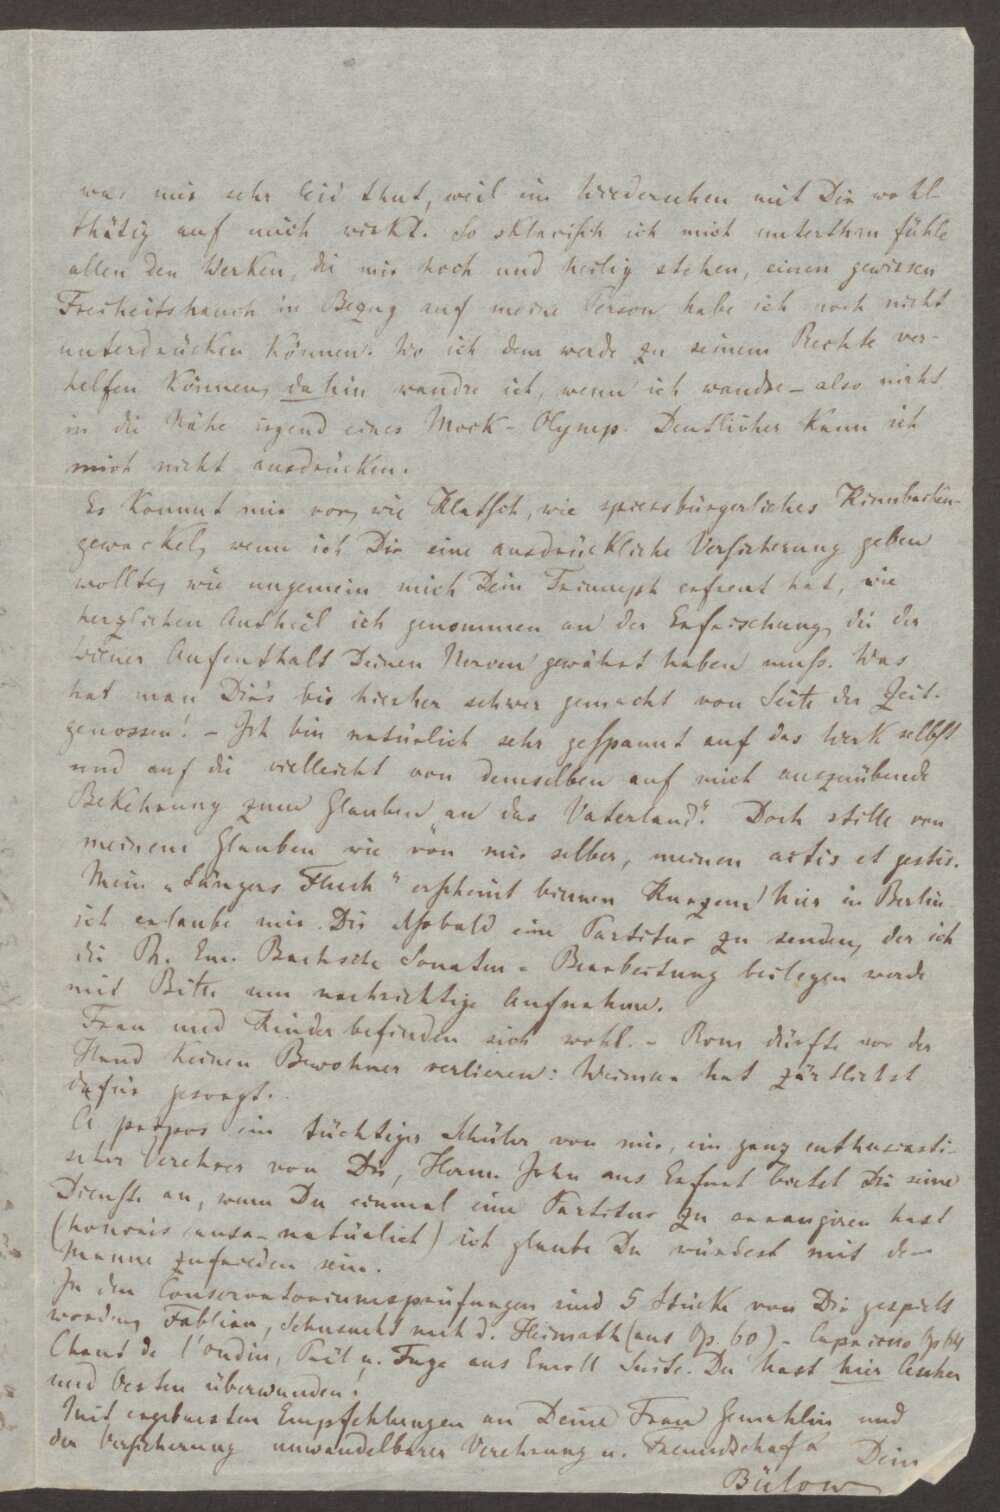 was mir sehr leid thut, weil ein Wiedersehen mit Dir wohl-
thätig auf mich wirkt. So sklavisch ich mich unterthan fühle
allen den Werken, die mir hoch und heilig stehen, einen gewissen
Freiheitshauch in Bezug auf meine Person habe ich noch nicht
unterdrücken können. Wo ich dem werde zu seinem Rechte ver-
helfen können, dahin wandre ich, wenn ich wandre – also nicht
in die Nähe irgend eines Mock-Olymp. Deutlicher kann ich
mich nicht ausdrücken.
Es kommt mir vor, wie Klatsch, wie spiessbürgerliches Kinnbacken-
gewackel, wenn ich Dir eine ausdrückliche Versicherung geben
wollte, wie ungemein mich Dein Triumph erfreut hat, wie
herzlichen Antheil ich genommen an der Erfrischung, die der
Wiener Aufenthalt Deinen Nerven gewährt haben muss. Was
hat man Dir's bis hierher schwer gemacht von Seite der Zeit-
genossen! – Ich bin natürlich sehr gespannt auf das Werk selbst
und auf die vielleicht von demselben auf mich auszuübende
Bekehrung zum Glauben an das Vaterland". Doch stille von
meinem Glauben wie von mir selber, meinen actis et gestis.
Mein „Sängers Fluch" erscheint binnen Kurzem hier in Berlin
ich erlaube mir Dir alsobald eine Partitur zu senden, der ich
die Ph. Em. Bachsche Sonaten-Bearbeitung beilegen werde
mit Bitte um nachsichtige Aufnahme.
Frau und Kinder befinden sich wohl. – Rom dürfte vor der
Hand keinen Bewohner verlieren: Weimar hat zärtlichst
dafür gesorgt.
A propos ein tüchtiger Schüler von mir, ein ganz enthusiasti-
scher Verehrer von Dir, Herm. John aus Erfurt bietet Dir seine
Dienste an, wenn Du einmal eine Partitur zu arrangiren hast
(honoris causa – natürlich) ich glaube Du würdest mit dem
Manne zufrieden sein.
In den Conservatoriumsprüfungen sind 5 Stücke von Dir gespielt
worden, Fabliau, Sehnsucht nach d. Heimath (aus Op. 60) – Capriccio Op 64
Chant de l'ondin, Präl u. Fuge aus Emoll Suite. Du hast hier Ascher
und Oesten überwunden!
Mit ergebensten Empfehlungen an Deine Frau Gemahlin und
der Versicherung unwandelbarer Verehrung u. Freundschaft
Dein
Bülow